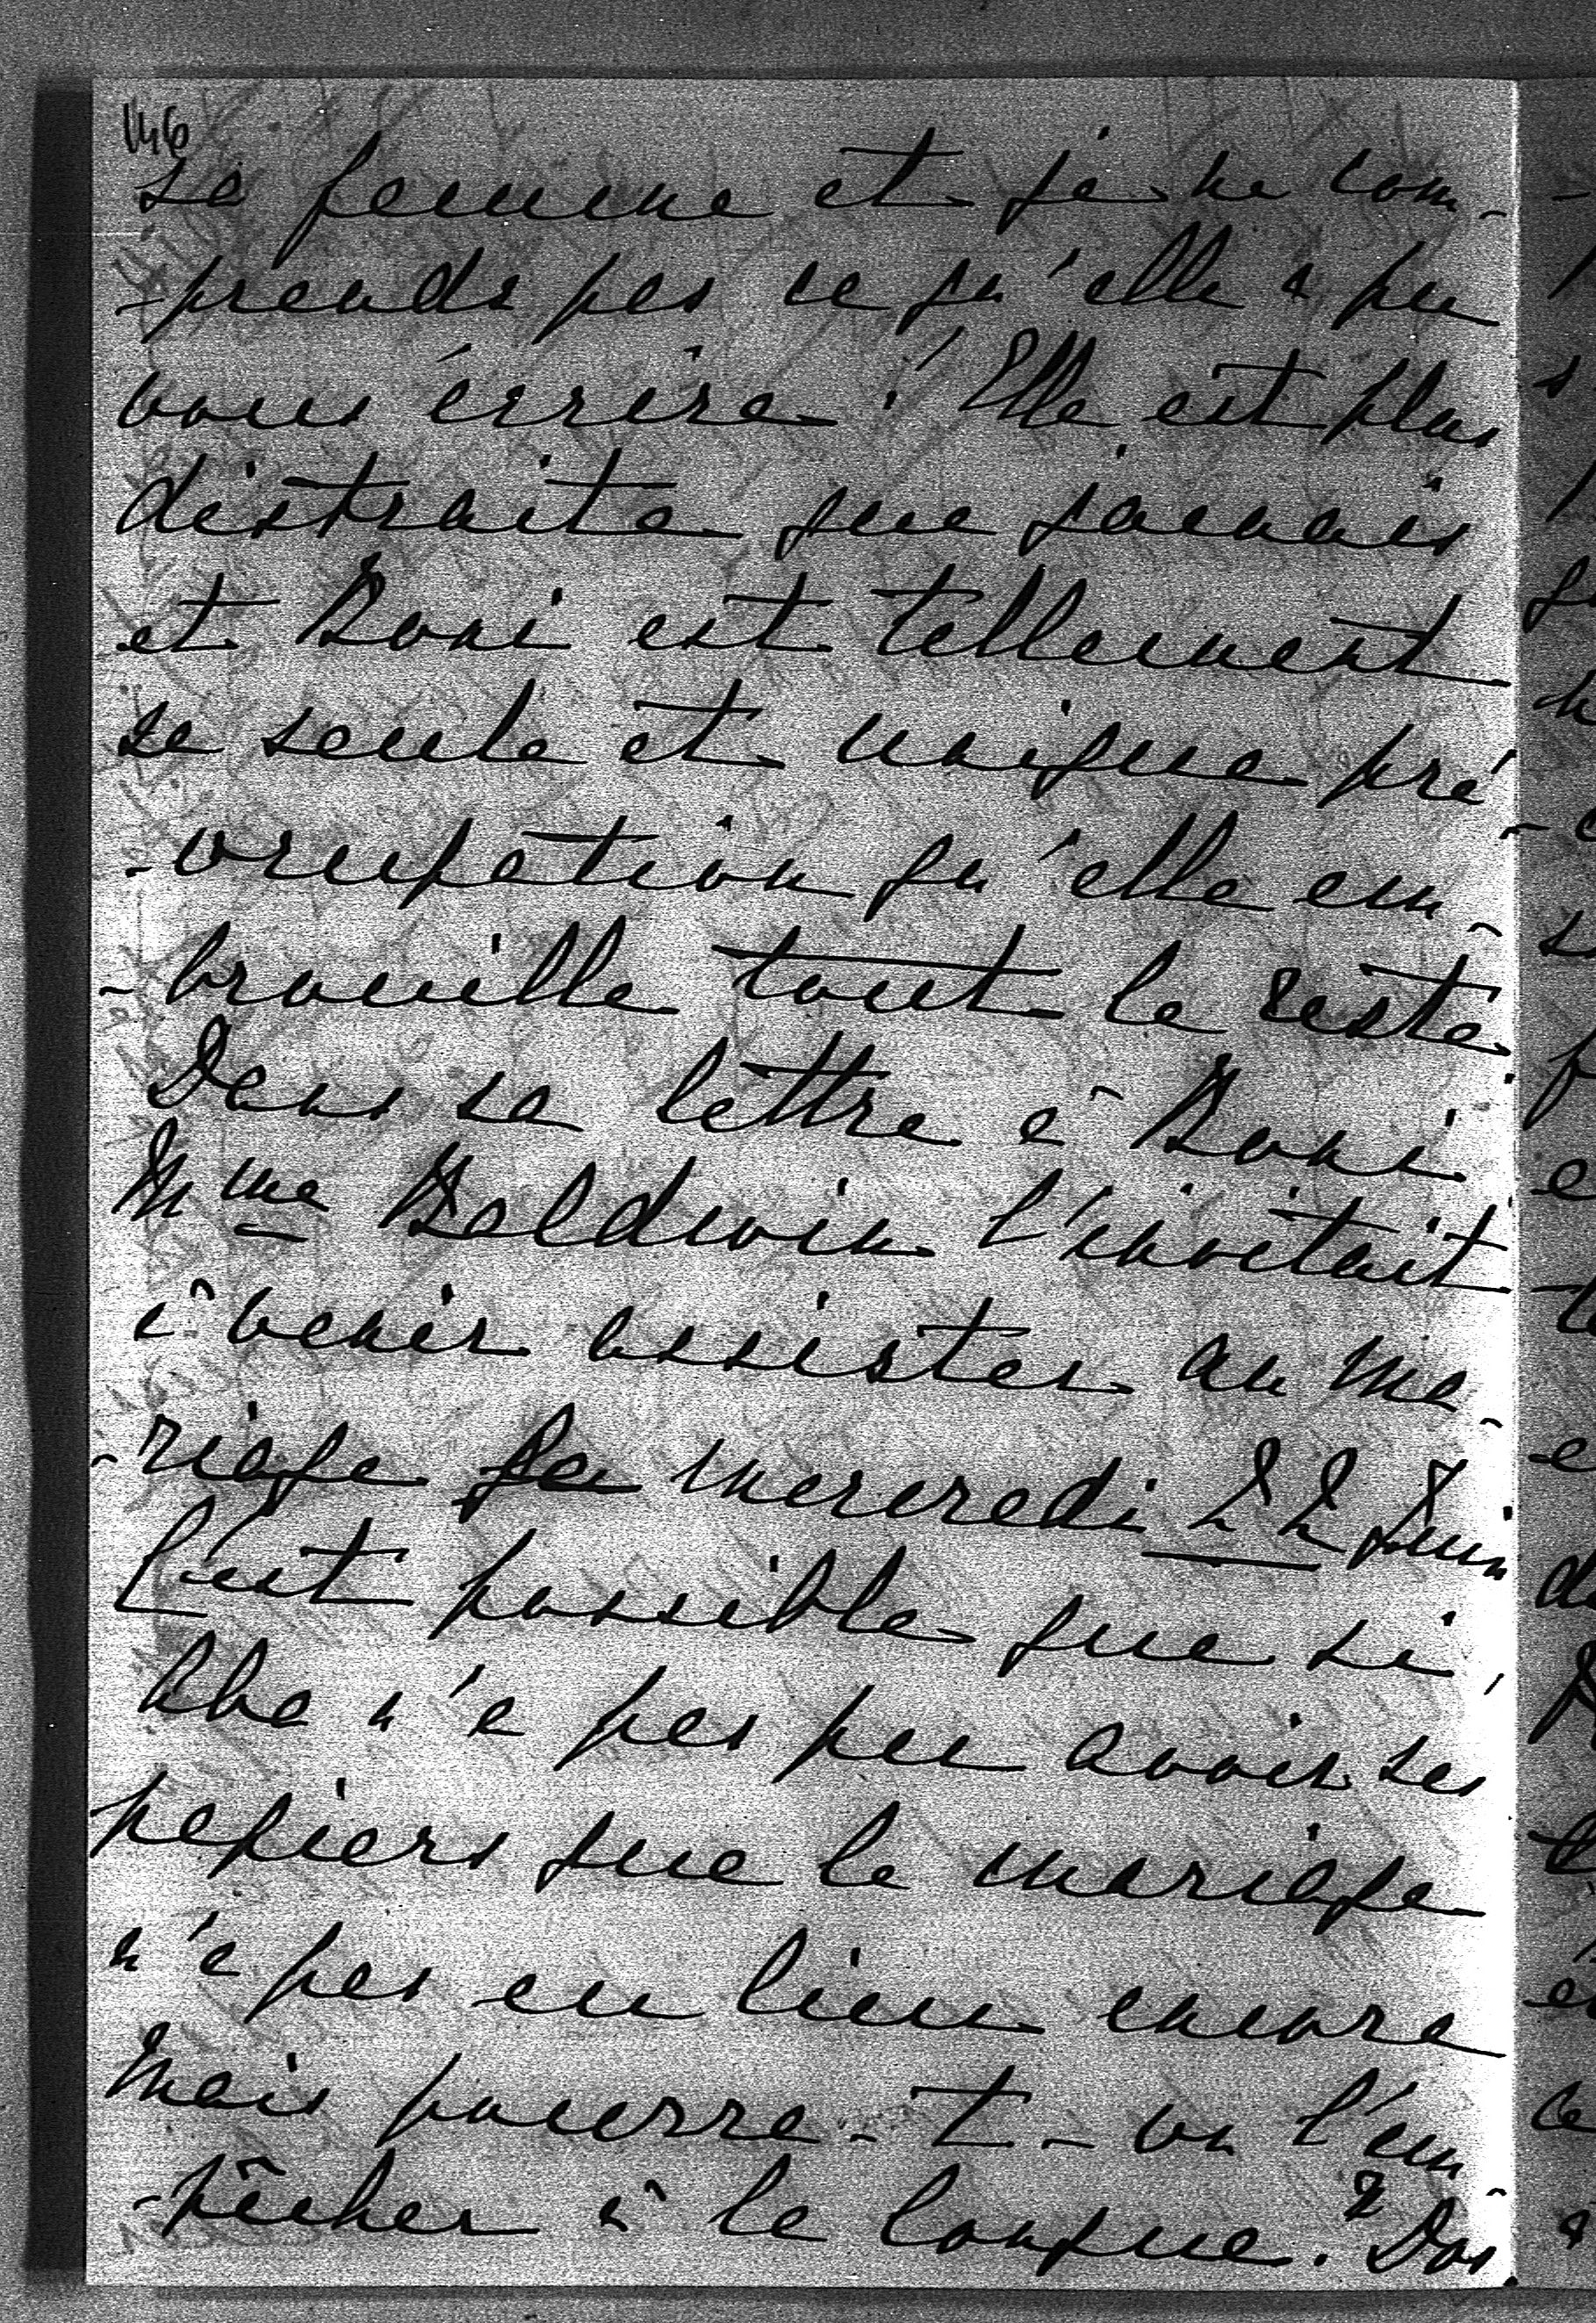 146
sa femme et je ne com-
-prends pas ce qu'elle a pu
vous écrire! Elle est plus
distraite que jamais
et Boni est tellement
sa seule et unique pré
-occupation qu'elle em-
-brouille tout le reste.
Dans sa lettre à Boni
Mme Baldwin l'invitait
à venir assister au ma-
-riage le mercredi 22 Juin.
C'est possible que si
Abe n'a pas pu avoir ses
papiers que le mariage
n'a pas eu lieu encore
Mais pourra-t-on l'em-
-pêcher à la longue?